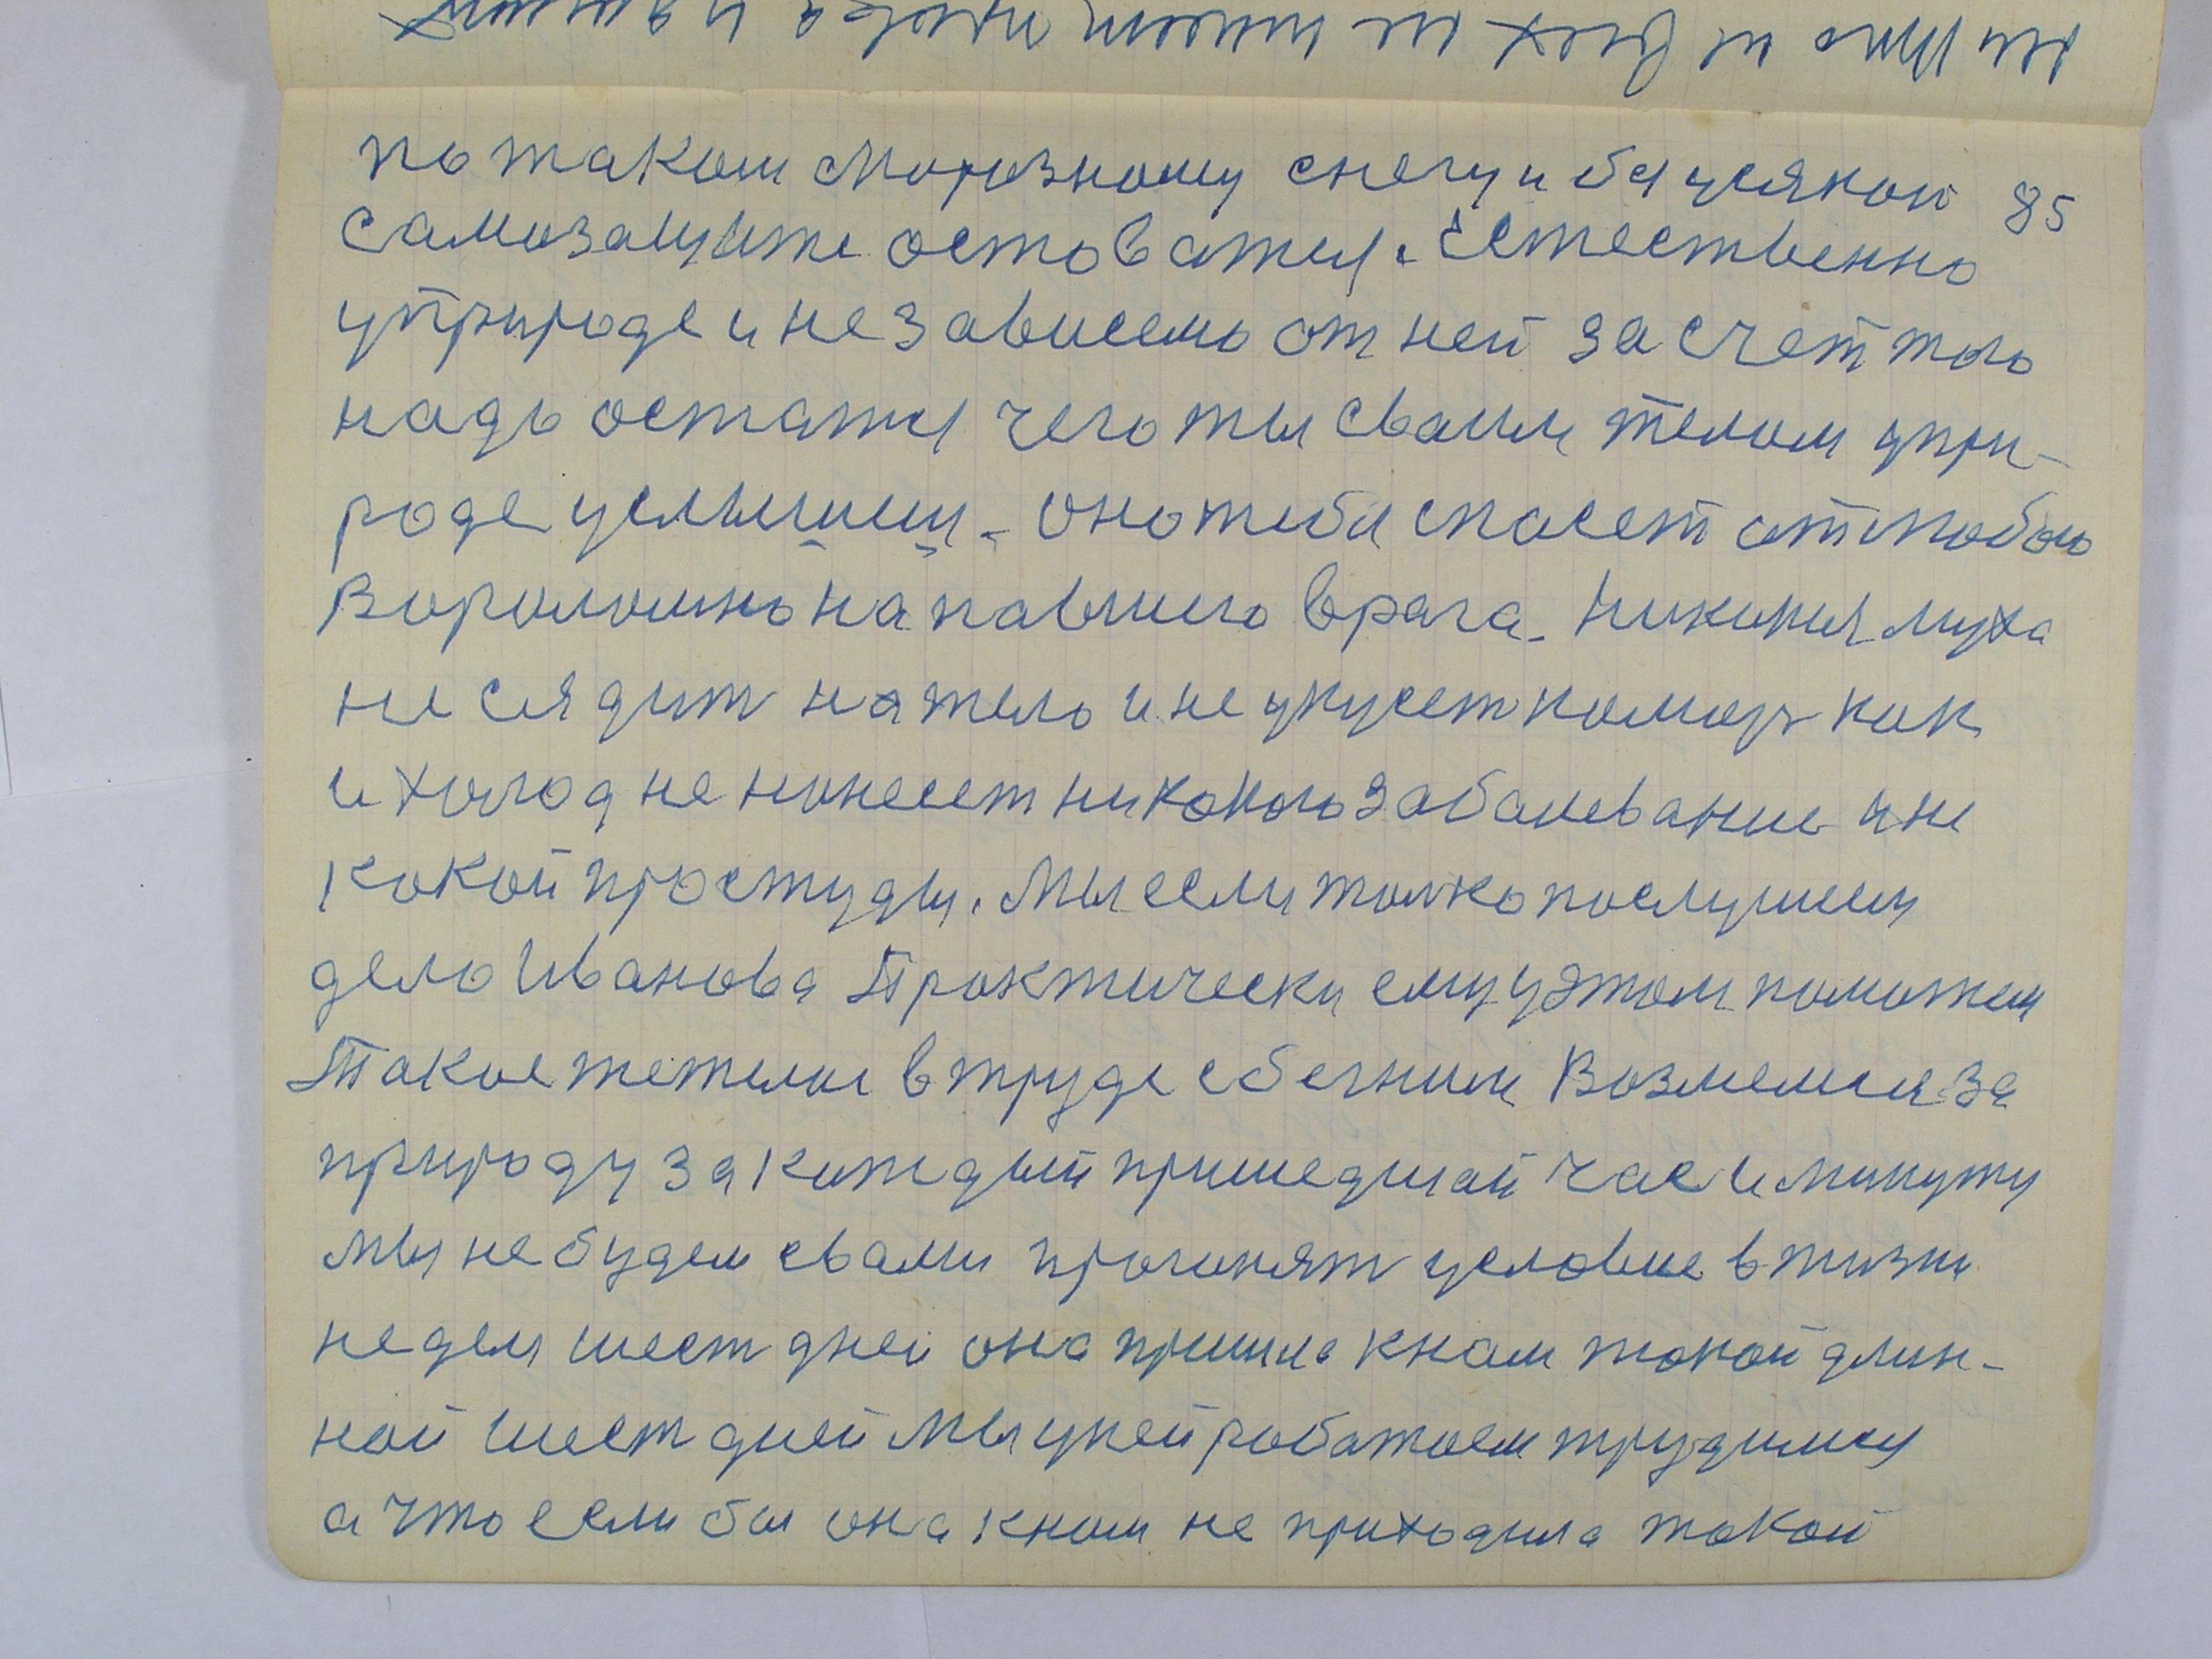 по таком морозному снегу и бя усякой 85
самозащите остоватся. Естественно
у природе и не зависемо от ней за счет того
надо остатся чего ты своим телом у при-
роде услышиш - оно тебя спасет от любого
вороломно напавшего врага. Никакия муха
не сядит на тело и не укусет комар как
и холод не нанесет никокого заболевание и не
кокой простуды. Мы если толко послушаем
дело Иванова Практически ему у этом поможем
Такое тежелое в труде сбегним Возмемся за
природу за каждый пришедшай час и минуту
мы не будем свами прогонят условие в жизни
неделя шест дней она пришла кнам такой длин-
ной шест дней мы у ней работаем трудимся
а что если бы она кнам не приходила такой